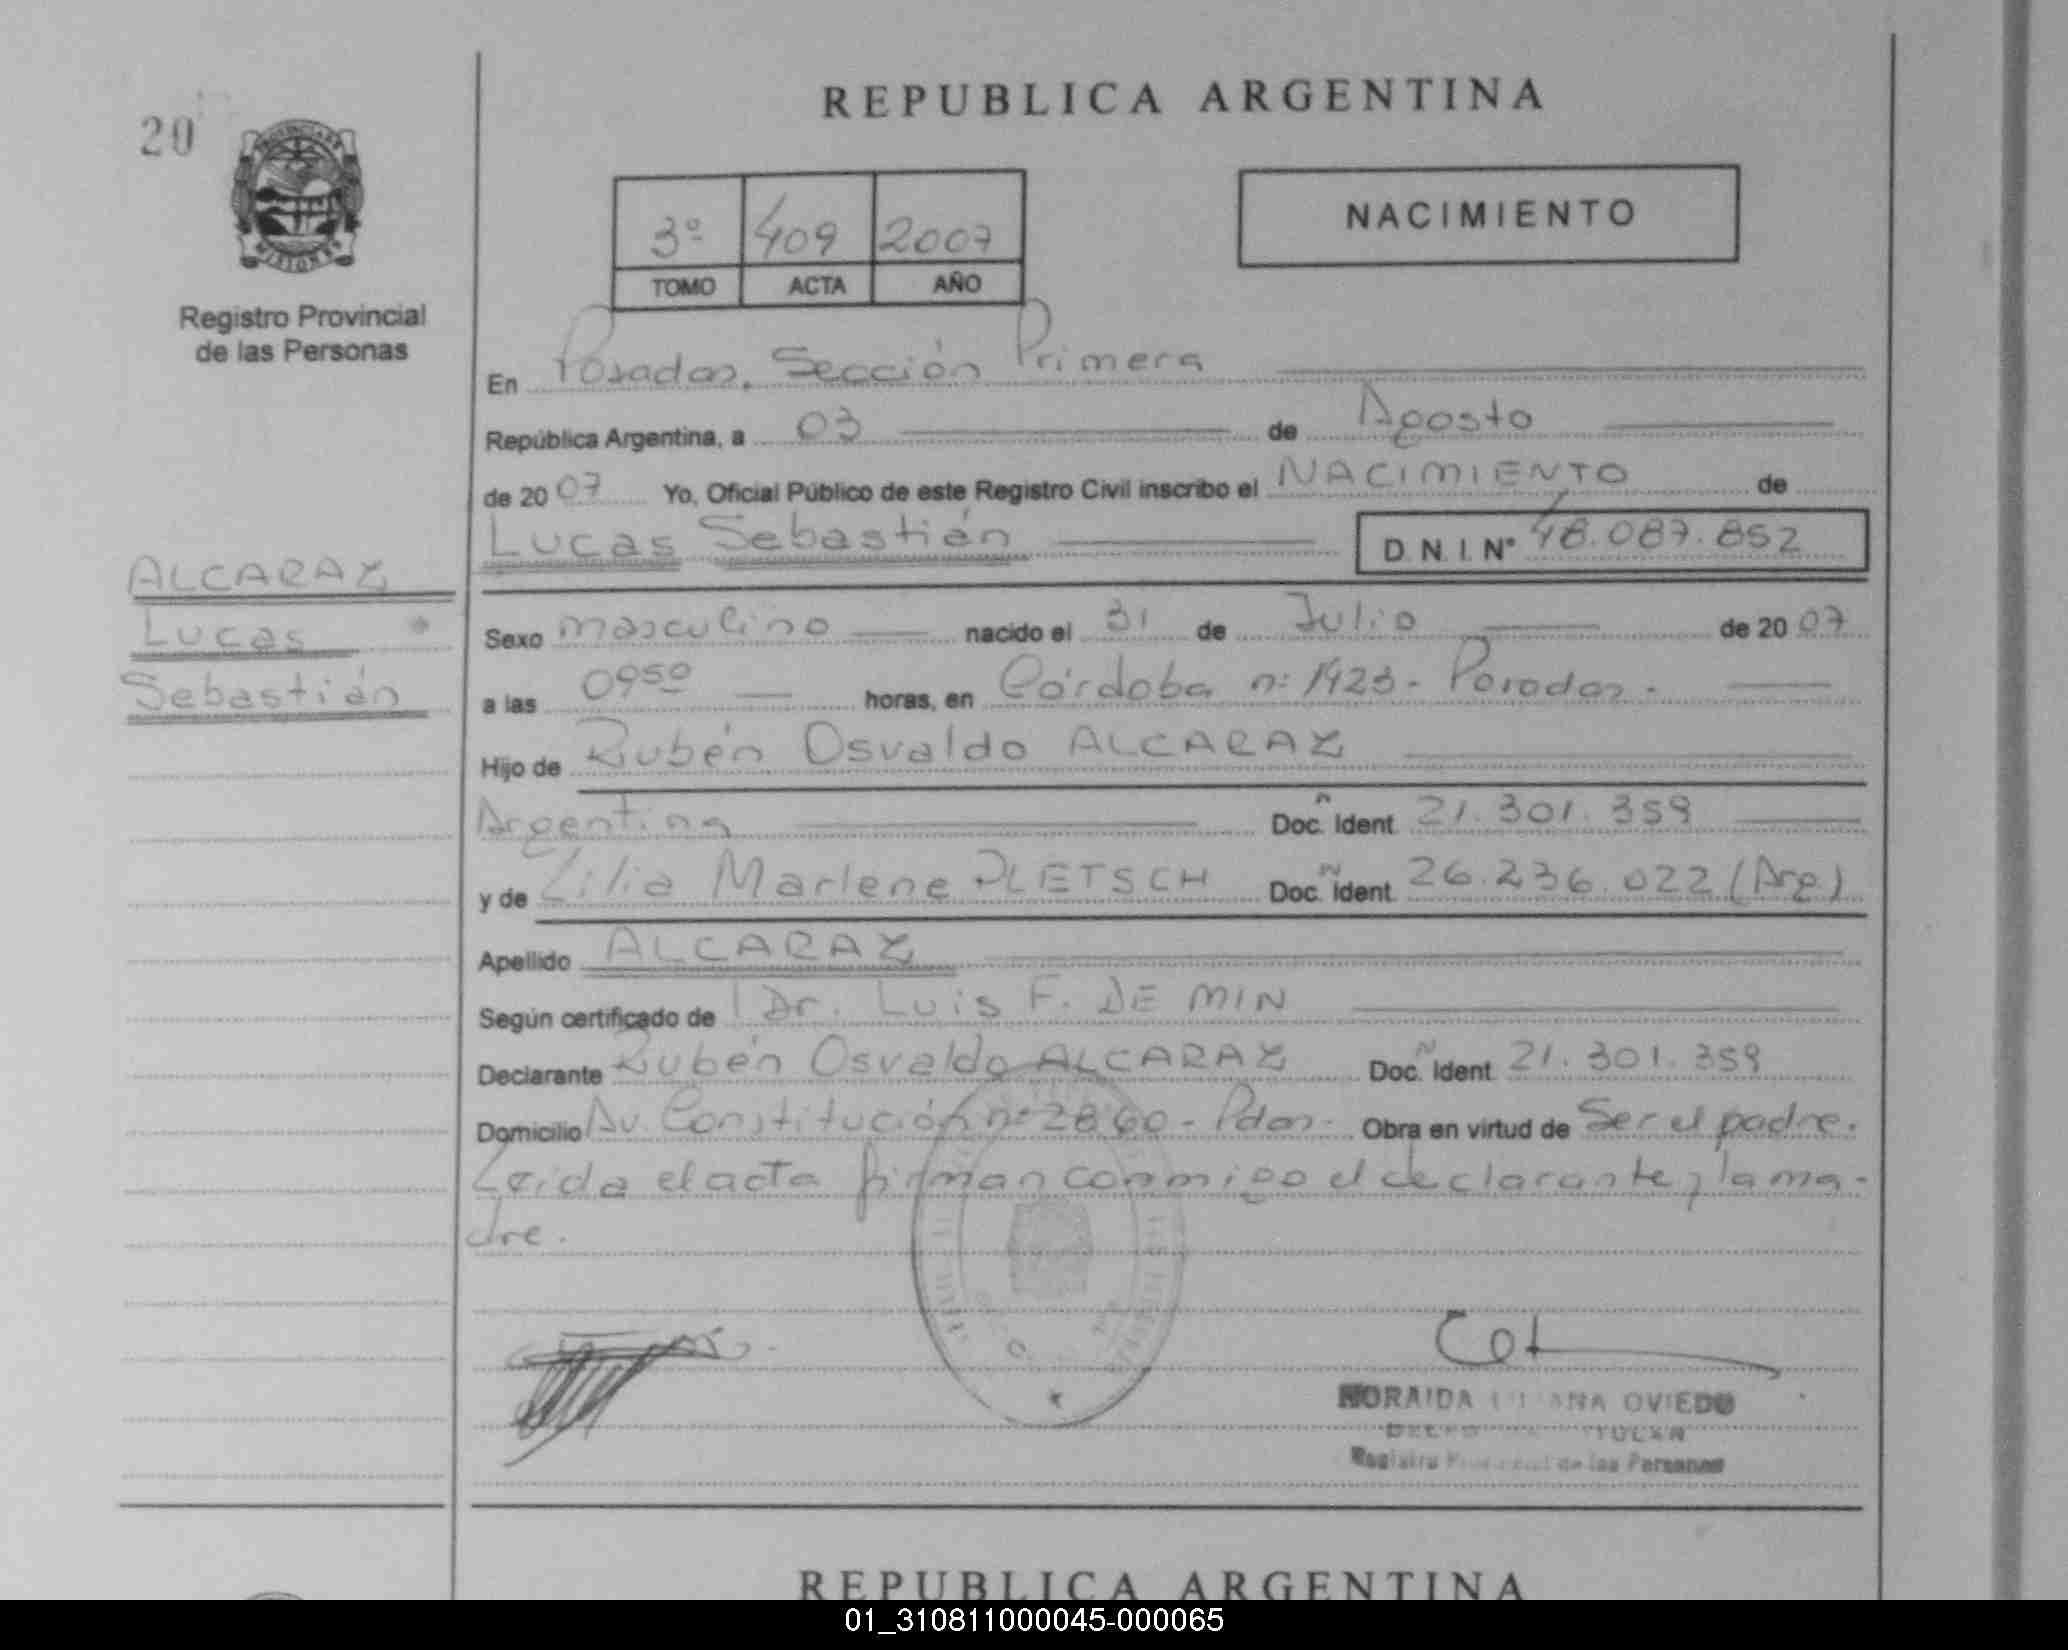 20
REPUBLICA ARGENTINA
3º 409 2007
TOMO ACTA AÑO
NACIMIENTO
MISIONES
Registro Provincial
de las Personas
En Posadas, Sección Primera
República Argentina, a 03 de Agosto
de 2007 Yo, Oficial Público de este Registro Civil inscribo el NACIMIENTO de
Lucas Sebastián D.N.I. Nº 48.087.852
ALCARAZ
Lucas
Sebastián
Sexo masculino nacido el 31 de Julio de 2007
a las 0950 horas, en Córdoba nº 1923 - Posadas -
Hijo de Rubén Osvaldo ALCARAZ
Argentina Doc. Ident. 21.301.359
y de Lilia Marlene PLETSCH Doc. Ident. 26.236.022 (Arg)
Apellido ALCARAZ
Según certificado de Dr. Luis F. DE MIN
Declarante Rubén Osvaldo ALCARAZ Doc. Ident. 21.301.359
Domicilio Av. Constitución nº 2860 - Pdas. Obra en virtud de Ser el padre.
Leida el acta firman conmigo el declarante y la ma-
dre.
NORAIDA OVIEDO
TITULAR
Registro Provincial de las Personas
REPUBLICA ARGENTINA
01_310811000045-000065